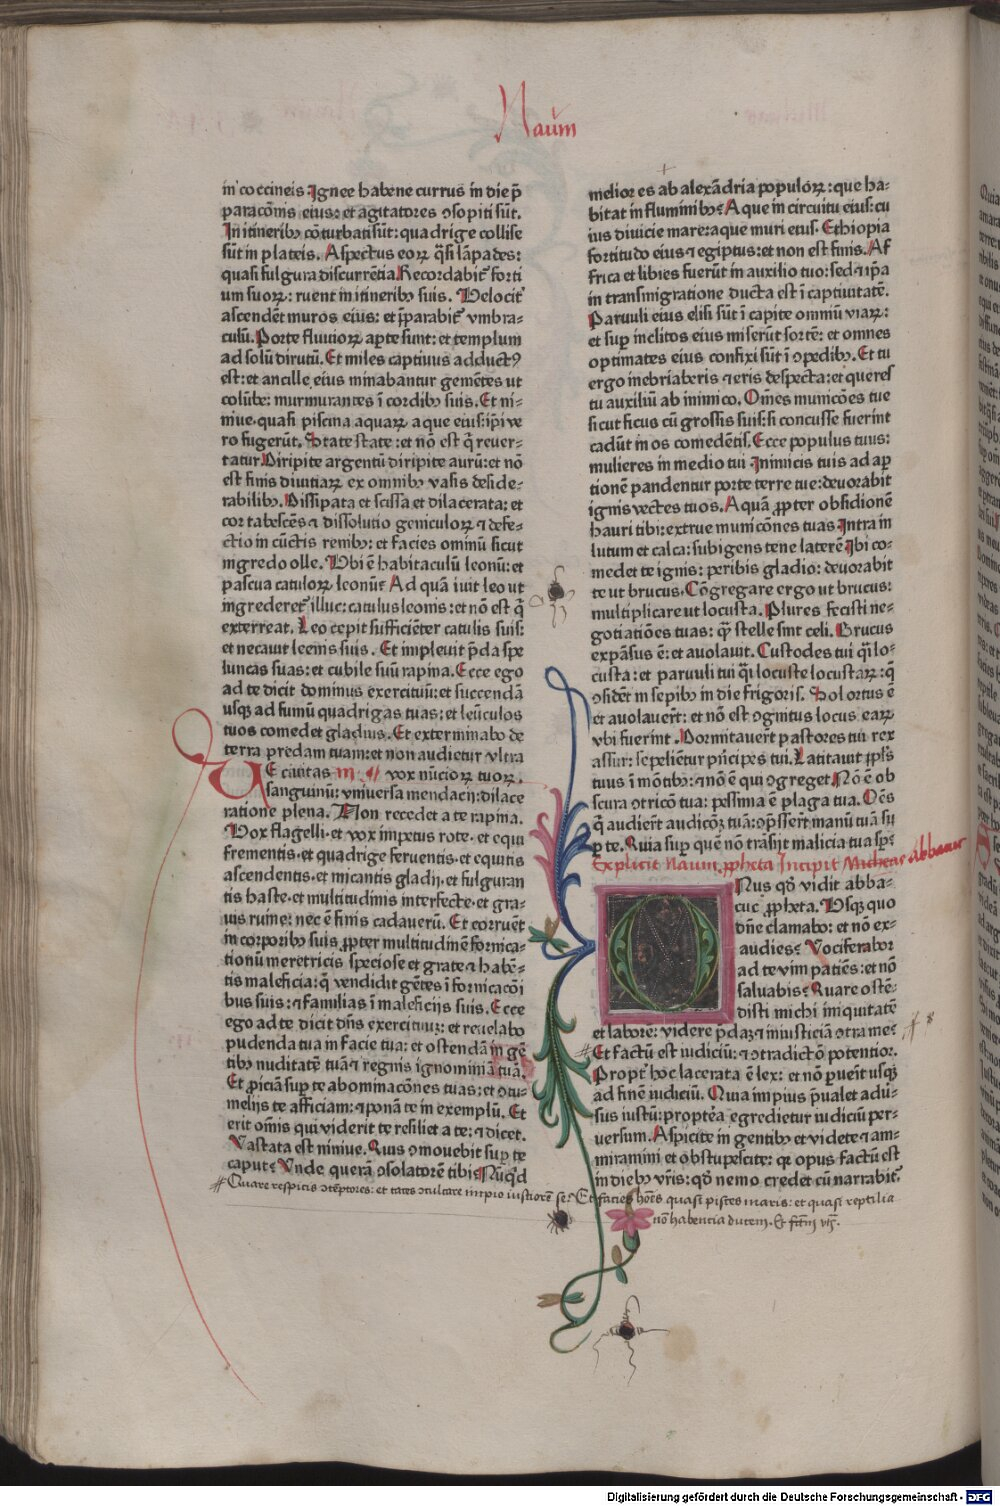 Naum
in coccineis. Ignee habene currus in die p̄
paracōnis eius: et agitatores ↄsopiti sūt.
In itineribꝰ cōturbati sūt: quadrige collise
sūt in plateis. Aspectus eoꝝ q̄si lāpades:
quasi fulgura discurrētia. Recordabit̄ forti
um suoꝝ: ruent in itineribꝫ suis. Velocit̄
ascendēt muros eius: et p̄parabit̄ vmbra-
culū. Porte fluuioꝝ apte sunt: et templum
ad solū dirutū. Et miles captiuus adductꝰ
est: et ancille eius minabantur gemētes ut
colūbe: murmurantes ī cordibꝫ suis. Et ni-
niue quasi piscina aquaꝝ aque eius: ip̄i ve
ro fugerūt. State state: et nō est q̄ reuer-
tatur. Diripite argentū diripite aurū: et nō
est finis diuitiaꝝ ex omnibꝫ vasis deside-
rabilibꝫ. Dissipata et scissa et dilacerata: et
cor tabescēs ⁊ dissolutio geniculoꝝ ⁊ defe-
ctio in cūctis renibꝫ: et facies omniū sicut
nigredo olle. Vbi ē habitaculū leonū: et
pascua catuloꝝ leonū? Ad quā iuit leo ut
ingrederet̄ illuc: catulus leonis: et nō est q̄
exterreat. Leo cepit sufficiēter catulis suis:
et necauit leenis suis. Et impleuit p̄da spe
luncas suas: et cubile suū rapina. Ecce ego
ad te dicit dominus exercituū: et succendā
usqꝫ ad fumū quadrigas tuas: et leūculos
tuos comedet gladius. Et exterminabo de
terra predam tuam: et non audietur vltra
vox nūcioꝝ tuoꝝ.
Ue ciuitas
sanguinū: vniuersa mendacij: dilace
ratione plena. Non recedet a te rapina.
Vox flagelli. et vox impetus rote. et equi
frementis. et quadrige feruentis. et equitis
ascendentis. et micantis gladij. et fulguran
tis haste. et multitudinis interfecte. et gra-
uis ruine: nec ē finis cadauerū. Et corruēt
in corporibꝫ suis ꝓpter multitudinē fornica-
tionū meretricis speciose et grate ⁊ habē-
tis maleficia: q̄ vendidit gētes ī fornicacōi
bus suis: ⁊ familias ī maleficijs suis. Ecce
ego ad te dicit dn̄s exercituū: et reuelabo
pudenda tua in facie tua: et ostendā in gē
tibꝫ nuditatē tuā ⁊ regnis ignominiā tuā.
Et ꝓiciā sup̱ te abominacōnes tuas: et ↄtu-
melijs te afficiam: ⁊ ponā te in exemplū. Et
erit om̄is qui viderit te resiliet a te: ⁊ dicet.
Vastata est niniue. Quis ↄmouebit sup̱ te
caput? Vnde querā ↄsolatorē tibi? Nūq̇d
melior es ab alexādria populoꝝ: que ha-
bitat in fluminibꝫ? Aque in circuitu eius: cu
ius diuicie mare: aque muri eius. Ethiopia
fortitudo eius ⁊ egiptus: et non est finis. Af
frica et libies fuerūt in auxilio tuo: sed ⁊ ip̄a
in transmigratione ducta est ī captiuitatē.
Paruuli eius elisi sūt ī capite omniū viaꝝ:
et sup̱ inclitos eius miserūt sortē: et omnes
optimates eius confixi sūt ī ↄpedibꝫ. Et tu
ergo inebriaberis ⁊ eris despecta: et queres
tu auxiliū ab inimico. Om̄es municōes tue
sicut ficus cū grossis suis: si concusse fuerint
cadūt in os comedētis. Ecce populus tuus:
mulieres in medio tui. Inimicis tuis ad ap̱
tionē pandentur porte terre tue: deuorabit
ignis vectes tuos. Aquā ꝓpter obsidionē
hauri tibi: extrue municōnes tuas. Intra in
lutum et calca: subigens tene laterē. Ibi co-
medet te ignis: peribis gladio: deuorabit
te ut brucus. Cōgregare ergo ut brucus:
multiplicare ut locusta. Plures fecisti ne-
gotiatiōes tuas: q̄ stelle sint celi. Brucus
expāsus ē: et auolauit. Custodes tui q̄i lo-
custa: et paruuli tui q̄i locuste locustaꝝ: q̄
ↄsidēt in sepibꝫ in die frigoris. Sol ortus ē
et auolauer̄t: et nō est ↄgnitus locus eaꝝ
vbi fuerint. Dormitauer̄t pastores tui rex
assur: sepelient̄ p̄ncipes tui. Latitauit ppl̄s
tuus ī mōtibꝫ: ⁊ nō ē qui ↄgreget. Nō ē ob
scura ↄtricō tua: pessima ē plaga tua. Oēs
q̄ audier̄t audicōꝫ tuā: ↄp̄sser̄t manū tuā su
p̱ te. Quia sup̱ quē nō trāsijt malicia tua sp̱?
Explicit Naum ꝓpheta Incipit Abbacuc
Onus qd̄ vidit abba-
cuc ꝓpheta. Vsqꝫ quo
dn̄e clamabo: et nō ex-
audies? Vociferabor
ad te vim patiēs: et nō
saluabis? Quare ostē-
disti michi iniquitatē
et labore: videre p̄daꝫ ⁊ iniusticiā ↄtra me?
Et factū est iudiciū: ⁊ ↄtradictō potentior.
Propt̄ hoc lacerata ē lex: et nō puenit usqꝫ
ad finē iudiciū. Quia impius p̄ualet aduer-
sus iustū: proptēa egredietur iudiciū per-
uersum. Aspicite in gentibꝫ et videte ⁊ am-
miramini et obstupescite: qꝛ opus factū est
in diebꝫ vr̄is: qd̄ nemo credet cū narrabit̄.
Quare respicis ↄtēptores: et taces ↄculcare impio iustiorē se? Et facies hoīes quasi pisces maris: et quasi reptilia
nō habencia ducem. Et
Digitalisierung gefördert durch die Deutsche Forschungsgemeinschaft - DFG